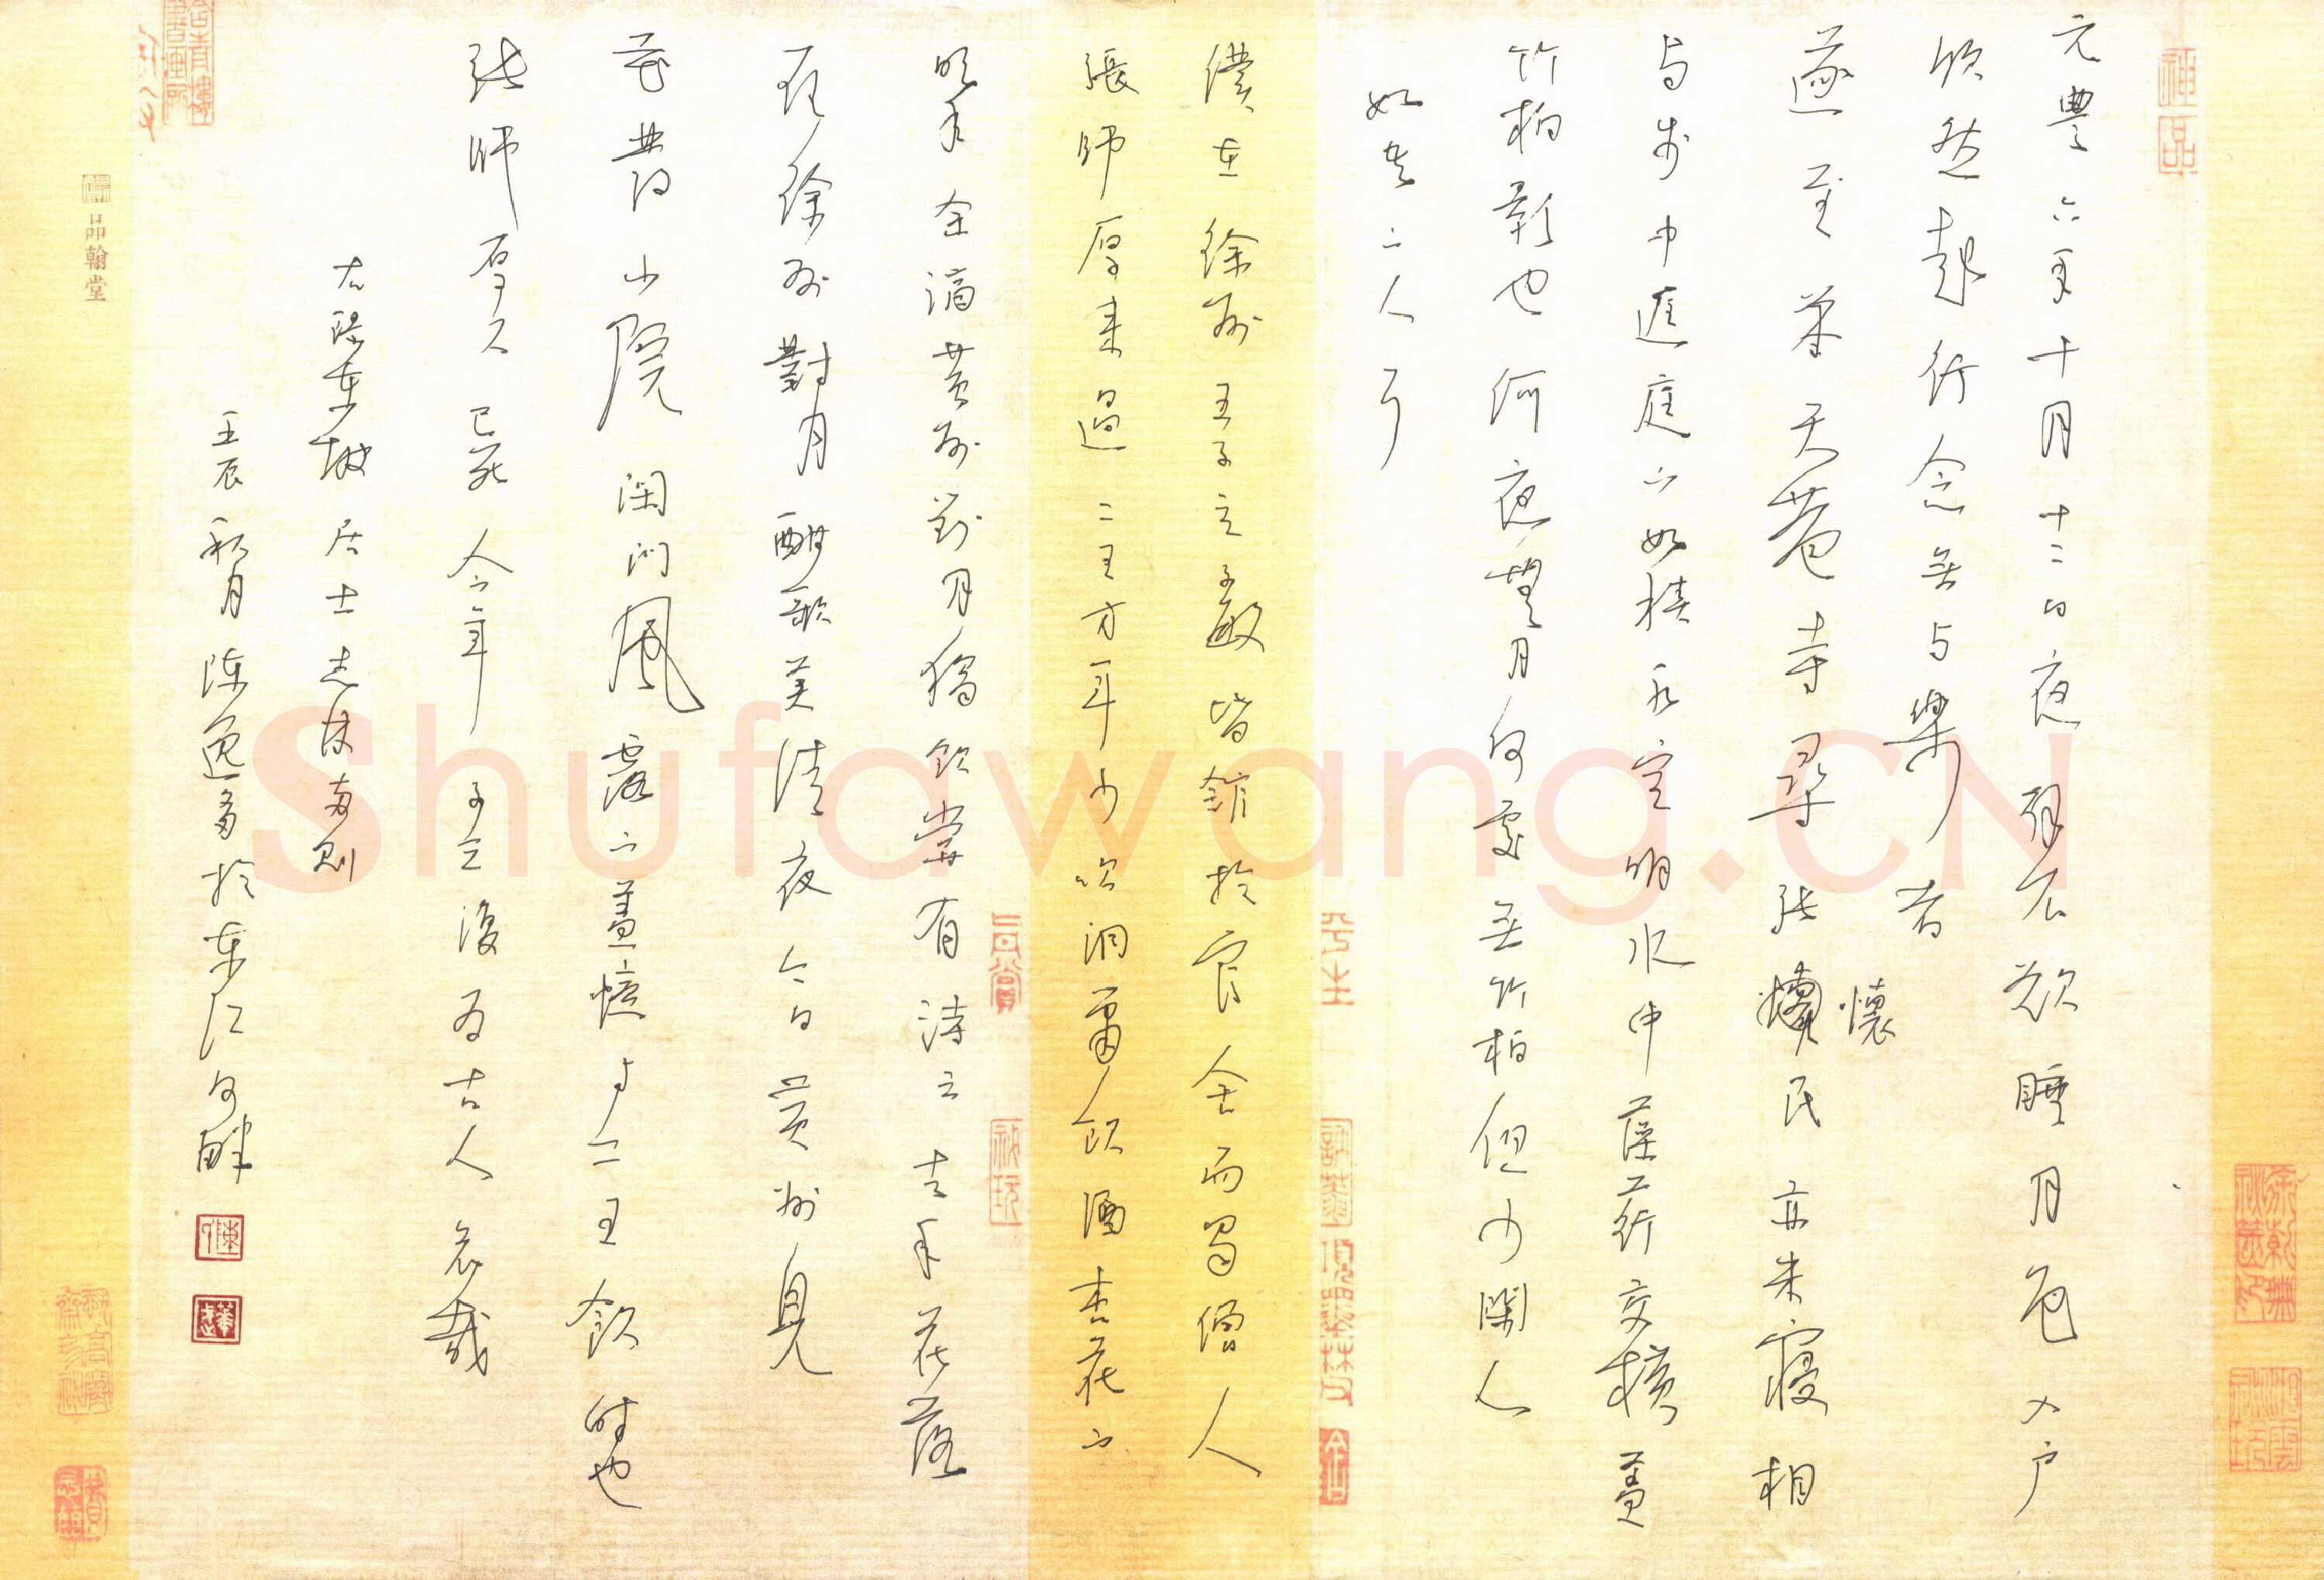 元豐六年十月十二日夜解衣欲睡月色入户
欣然起行念無与樂者
遂至承天莟寺尋張懷民亦未寢相
与步中逰庭下如積水空明水中藻荇交横蓋
竹柏影也何夜無月何處無竹柏但少閑人
如吾二人耳
僕在徐州王子立子敏皆館於官舍而蜀僧人
張師厚来過二王方年少吹洞蕭飲酒杏花下
明年余謫黄州對月獨飲嘗有詩云去年花落
在徐州對月酣歌美清夜今日黄州見
花發小院閑門風露下蓋憶与二王飲時也
張師厚久已死今年子立復為古人哀哉
右録東坡居士志林兩則
壬辰秋月陳逸多於東江句畔
品翰堂
神品
Shufawang.CN